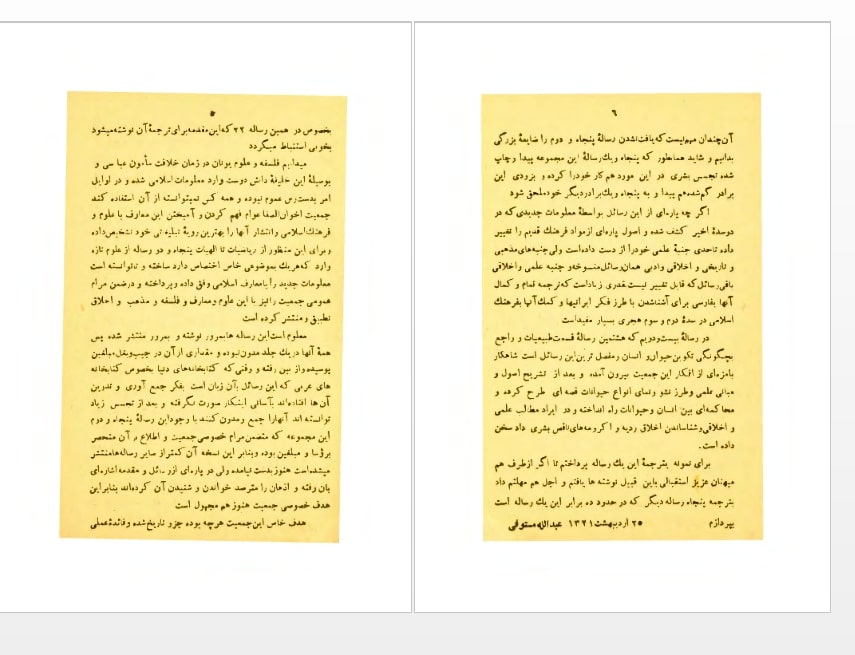 ۵
بخصوص در همین رساله ۲۲ که این مقدمه برای ترجمهٔ آن نوشته میشود
بخوبی استنباط میگردد
میدانیم فلسفه و علوم یونان در زمان خلافت مأمون عباسی و
بوسیلهٔ این خلیفهٔ دانش دوست وارد معلومات اسلامی شده و در اوایل
امر بدسترس عموم نبوده و همه کس نمیتوانسته از آن استفاده کند
جمعیت اخوان الصفا عوام فهم کردن و آمیختن این معارف با علوم و
فرهنك اسلامی و انتشار آنها را بهترین رویهٔ تبلیغاتی خود تشخیص داده
و برای این منظور از ریاضیات تا الهیات پنجاه و دو رساله از علوم تازه
وارد که هر یك بموضوعی خاص اختصاص دارد ساخته و تا توانسته است
معلومات جدید را با معارف اسلامی وفق داده و پرداخته و در ضمن مرام
عمومی جمعیت را نیز با این علوم و معارف و فلسفه و مذهب و اخلاق
تطبیق و منتشر کرده است
معلوم است این رساله ها بمرور نوشته و بمرور منتشر شده پس
همهٔ آنها در یك جلد مدون نبوده و مقداری از آن در جیب و بغل مبلغین
پوسیده و از بین رفته و وقتی که کتابخانه‌های دنیا بخصوص کتابخانه
های عربی که این رسائل بآن زبان است بفکر جمع آوری و تدوین
آن ها افتاده‌اند بآسانی اینکار صورت نگرفته و بعد از تجسس زیاد
توانسته اند آنها را جمع و مدون کنند با وجود این رسالهٔ پنجاه و دوم
این مجموعه که متضمن مرام خصوصی جمعیت و اطلاع بر آن منحصر
برؤسا و مبلغین بوده و بنابر این نسخه آن کمتر از سایر رساله‌ها منتشر
میشده است هنوز بدست نیامده ولی در پاره‌ای از رسائل و مقدمه اشاره‌ای
بآن رفته و اذهان را مترصد خواندن و شنیدن آن کرده‌اند بنابر این
هدف خصوصی جمعیت هنوز هم مجهول است
هدف خاص این جمعیت هرچه بوده جزو تاریخ شده و فائدهٔ عملی
۶
آن چندان مهم نیست که یافت نشدن رسالهٔ پنجاه و دوم را ضایعهٔ بزرگی
بدانیم و شاید همانطور که پنجاه و یك رسالهٔ این مجموعه پیدا و چاپ
شده تجسس بشری در این مورد هم کار خود را کرده و بزودی این
برادر گم شده هم پیدا و به پنجاه و یك برادر دیگر خود ملحق شود
اگر چه پاره‌ای از این رسائل بواسطهٔ معلومات جدیدی که در
دو سدهٔ اخیر کشف شده و اصول پاره‌ای از مواد فرهنك قدیم را تغییر
داده تا حدی جنبهٔ علمی خود را از دست داده است ولی جنبه‌های مذهبی
و تاریخی و اخلاقی و ادبی همان رسائل منسوخه و جنبه علمی و اخلاقی
باقی رسائل که قابل تغییر نیست بقدری زیاد است که ترجمه تمام و کمال
آنها بفارسی برای آشنا شدن با طرز فکر ایرانیها و کمك آنها بفرهنك
اسلامی در سدهٔ دوم و سوم هجری بسیار مفید است
در رسالهٔ بیست و دویم که هشتمین رسالهٔ قسمت طبیعیات و راجع
بچگونگی تکوین حیوان و انسان و مفصل ترین این رسائل است شاهکار
بامزه‌ای از افکار این جمعیت بیرون آمده و بعد از تشریح اصول و
مبانی علمی و طرز نشو و نمای انواع حیوانات قصه ای طرح کرده و
محاکمه‌ای بین انسان و حیوانات راه انداخته و در ایراد مطالب علمی
و اخلاقی و شناساندن اخلاق ردیه و اکرومه‌های ناقص بشری داد سخن
داده است.
برای نمونه بترجمهٔ این یك رساله پرداختم تا اگر از طرف هم
میهنان عزیز استقبالی باین قبیل نوشته ها یافتم و اجل هم مهلتم داد
بترجمه پنجاه رساله دیگر که در حدود ده برابر این یك رساله است
بپردازم
۲۵ اردیبهشت ۱۳۲۱ عبدالله مستوفی